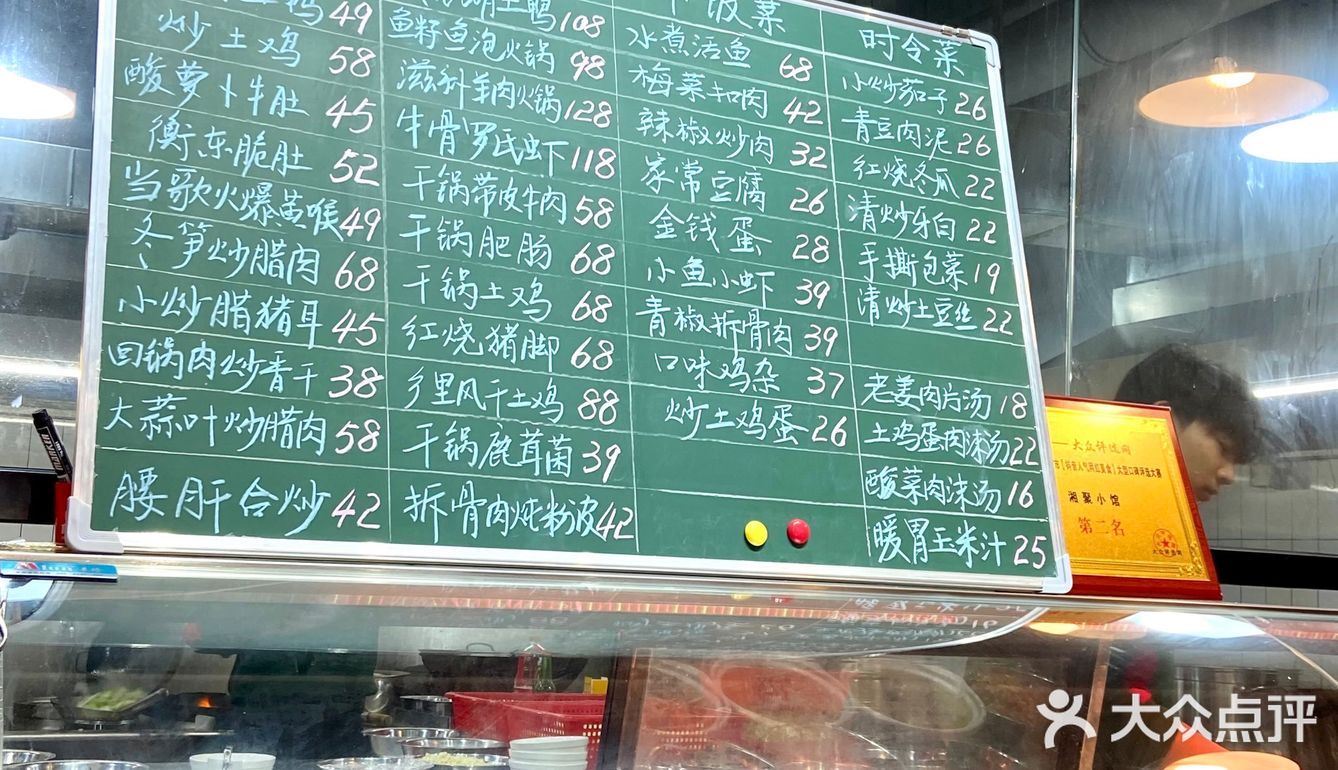 鸭 49
炒土鸡 58
酸萝卜牛肚 45
衡东脆肚 52
当歌火爆黄喉 49
冬笋炒腊肉 68
小炒腊猪耳 45
回锅肉炒香干 38
大蒜叶炒腊肉 58
腰肝合炒 42
土鸭 108
鱼籽鱼泡火锅 98
滋补羊肉火锅 128
牛骨罗氏虾 118
干锅带皮牛肉 58
干锅肥肠 68
干锅土鸡 68
红烧猪脚 68
乡里风干土鸡 88
干锅鹿茸菌 39
拆骨肉炖粉皮 42
下饭菜
水煮活鱼 68
梅菜扣肉 42
辣椒炒肉 32
家常豆腐 26
金钱蛋 28
小鱼小虾 39
青椒拆骨肉 39
口味鸡杂 37
炒土鸡蛋 26
时令菜
小炒茄子 26
青豆肉泥 26
红烧冬瓜 22
清炒牙白 22
手撕包菜 19
清炒土豆丝 22
老姜肉片汤 18
土鸡蛋肉沫汤 22
酸菜肉沫汤 16
暖胃玉米汁 25
湘聚小馆
第二名
大众点评